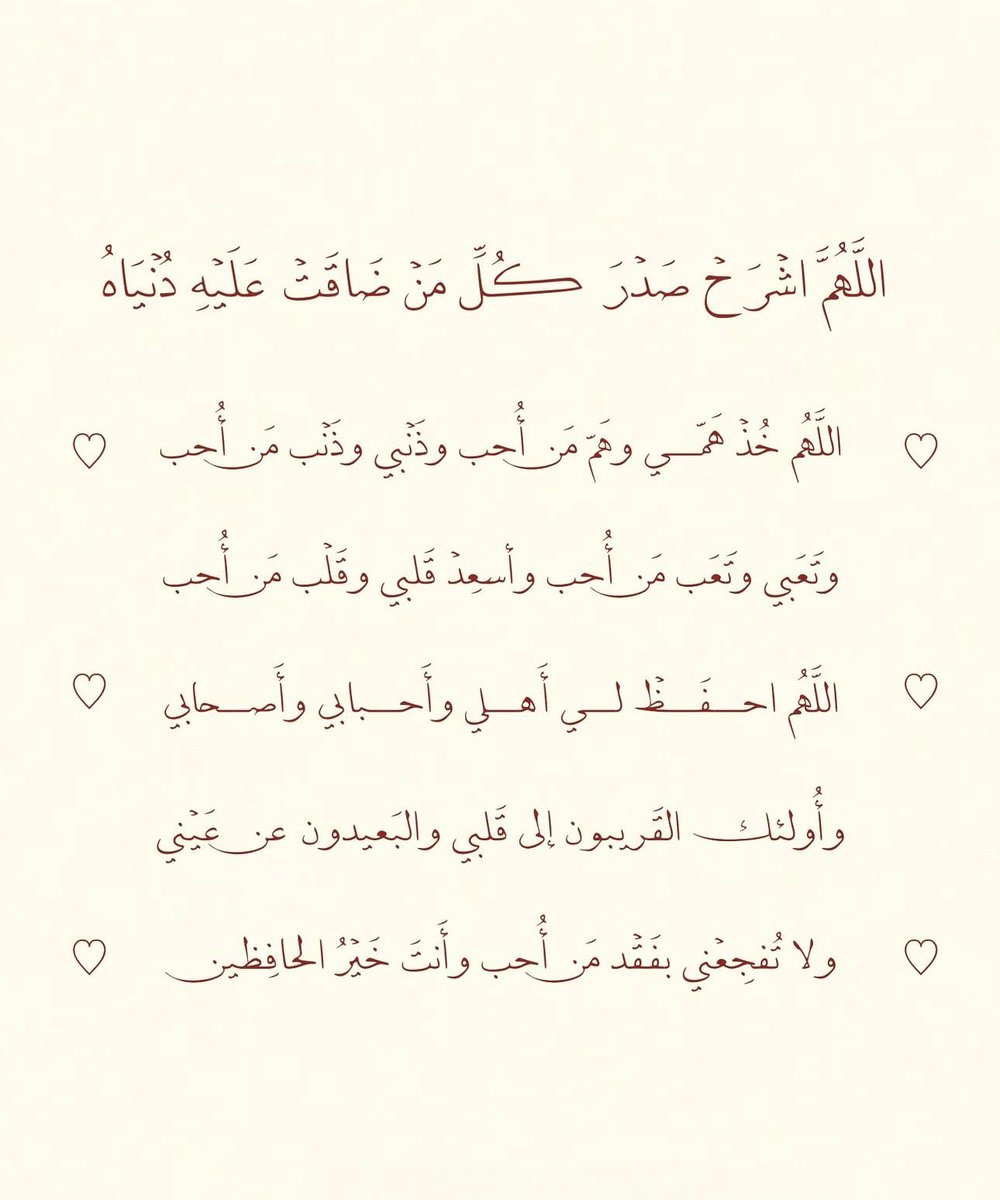 اللَّهُمَّ اشْرَحْ صَدْرَ كُلِّ مَنْ ضَاقَتْ عَلَيْهِ دُنْيَاهُ
اللَّهُم خُذْ هَمّـــي وهَمّ مَن أُحب وذَنْبي وذَنْب مَن أُحب
وتَعَبي وتَعَب مَن أُحب وأسعِدْ قَلبي وقَلْب مَن أُحب
اللَّهُم احـــفَـــظْ لـــي أَهـــلي وأَحـــبابي وأَصـــحابي
وأُولئك القَريبون إلى قَلبي والبَعيدون عن عَيْني
ولا تُفجِعْني بفَقْد مَن أُحب وأَنتَ خَيْرُ الحافِظين